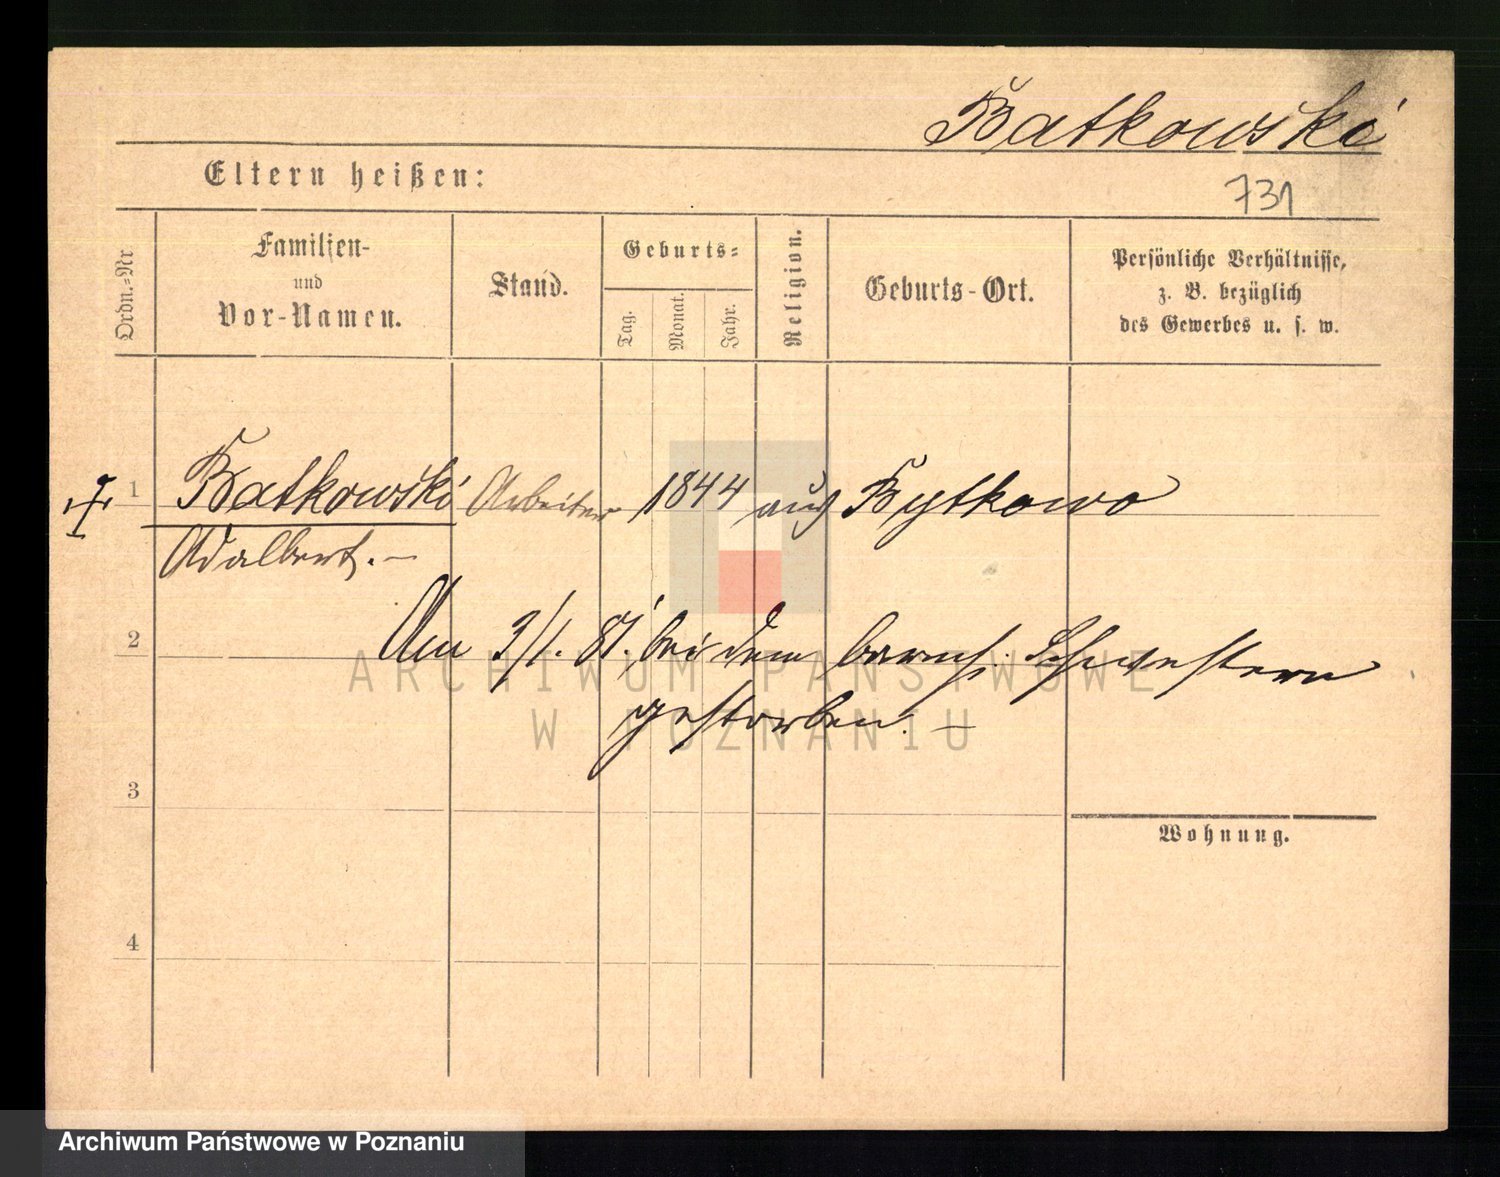 Batkowski
731
Eltern heißen:
Ordn.-Nr
Familien-
und
Vor-Namen.
Stand.
Geburts-
Tag.
Monat.
Jahr.
Religion.
Geburts-Ort.
Persönliche Verhältnisse,
z. B. bezüglich
des Gewerbes u. s. w.
1 Batkowski Arbeiter 1844 aus Bytkowo
Adalbert.—
2
Am 3/1. 81. bei den barmh. Schwestern
gestorben.—
ARCHIWUM PAŃSTWOWE
W POZNANIU
3
Wohnung.
4
Archiwum Państwowe w Poznaniu